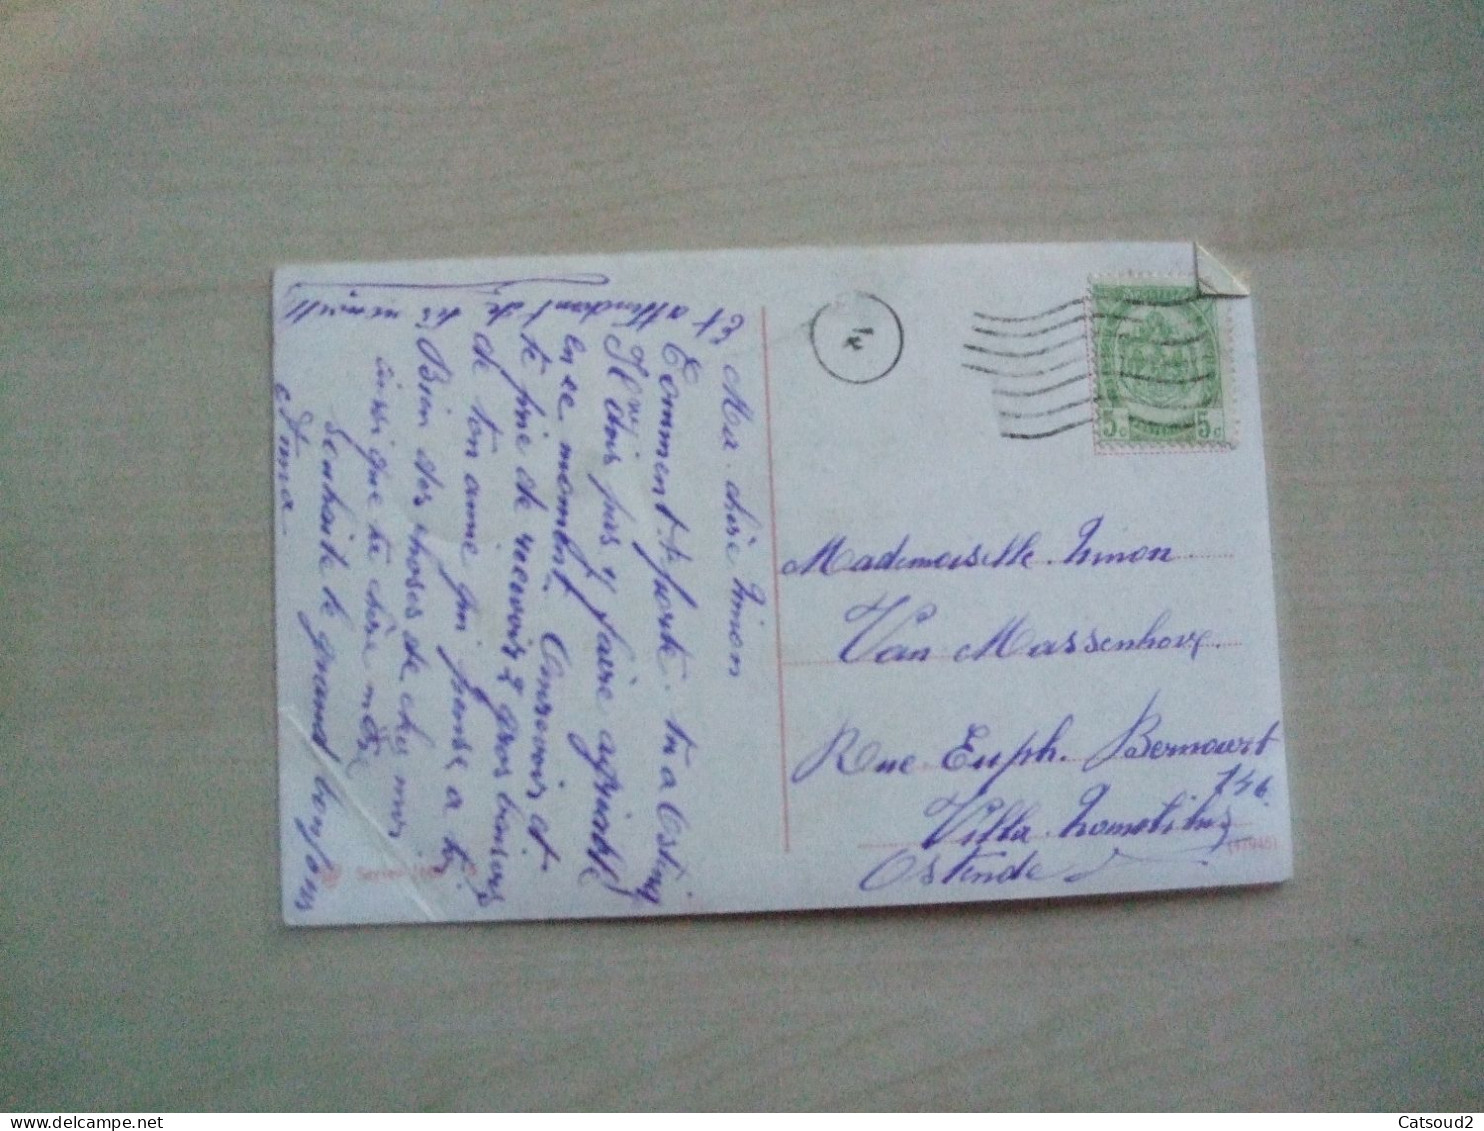 Ma chère Simon
Comment te porte tu a Ostende
Il dois pas y faire agréable
en ce moment. Aurevoir et
te prie de recevoir 2 gros baisers
de ton amie qui pense a toi
Bien des choses de chez moi
ainsi que ta chère mère
Senhaite le grand bonjour
Et attendant de tes
5c 5c
Mademoiselle Simon
Van Massenhove
Rue Euph. Bernouert
Villa
Ostende
Series
Catsoud2